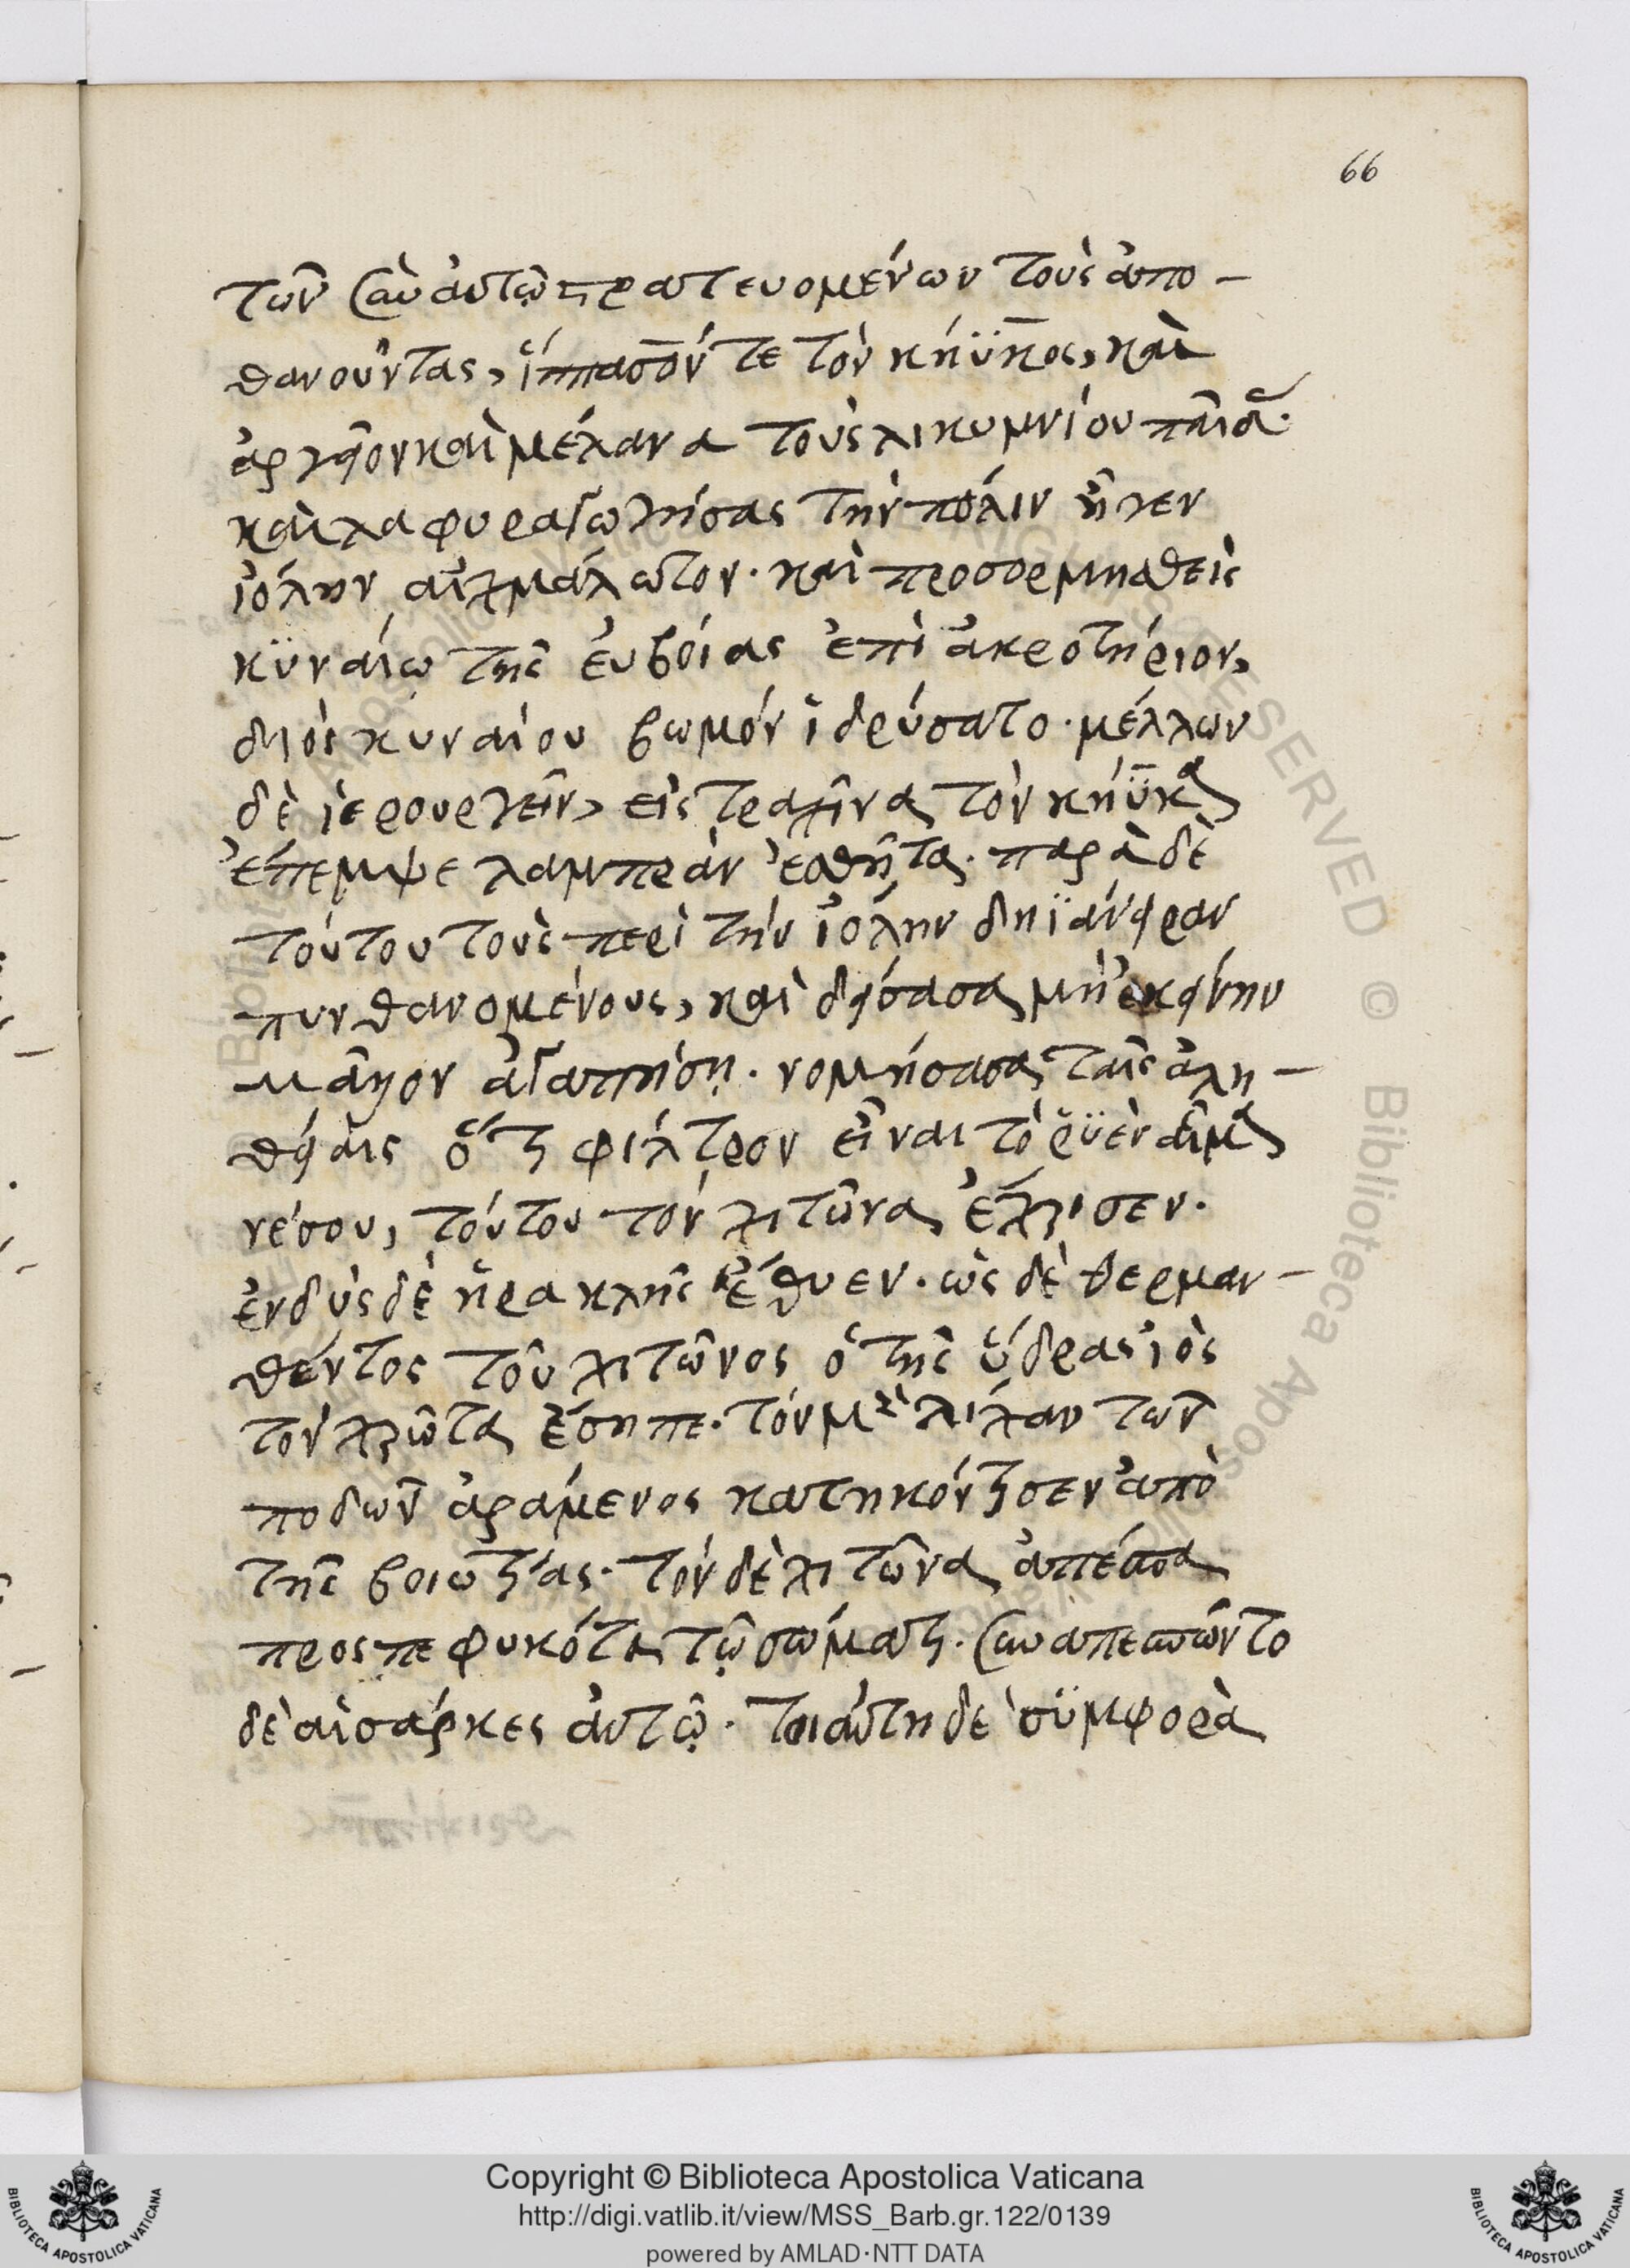 66
τῶν σὺν ἀυτῶ στρατευομένων τοὺς ἀπο-
θανοῦντας, ἵππασόν τε τὸν κήϋκος, καὶ
ἀργεῖον καὶ μέλανα τοὺς λικυμνίου παῖδας.
καὶ λαφυραγωγήσας τὴν πόλιν ἦγεν
ἰόλην αἰχμάλωτον. καὶ προσορμησθεὶς
κϋναίω τῆς ἐυβοίας ἐπὶ ἀκροτήριον,
διὸς κυναίου βωμὸν ἱδρύσατο. μέλλων
δὲ ἱερουργεῖν, εἰς τραχῖνα τὸν κήϋκα
ἔπεμψε λαμπρὰν ἐσθῆτα. παρὰ δὲ
τούτου τοὺς περὶ τὴν ἰόλην δηϊάνειραν
πυνθανομένους, καὶ δείσασα μὴ ἐκείνην
μᾶλλον ἀγαπήση. νομήσασα ταῖς ἀλη-
θείαις ὅτι φίλτρον εἶναι τὸ ῥϋὲν αἷμα
νέσου, τούτου τὸν χιτῶνα ἔχρισεν.
ἐνδὺς δὲ ἡρακλῆς ἔθυεν. ὡς δὲ θερμαν-
θέντος τοῦ χιτῶνος ὁ τῆς ὕδρας ἰὸς
τὸν χρῶτα ἔσηπε. τὸν μὲν λίχαν τῶν
ποδῶν ἀράμενος κατηκόντισεν ἀπὸ
τῆς βοιωτίας. τὸν δὲ χιτῶνα ἀπέσπα
προσπεφυκότα τῶ σώματι. συναπεσπῶντο
δὲ αἱ σάρκες ἀυτῶ. τοιάυτη δὲ σϋμφορὰ
Copyright © Biblioteca Apostolica Vaticana
http://digi.vatlib.it/view/MSS_Barb.gr.122/0139
powered by AMLAD·NTT DATA
BIBLIOTECA APOSTOLICA VATICANA
BIBLIOTECA APOSTOLICA VATICANA